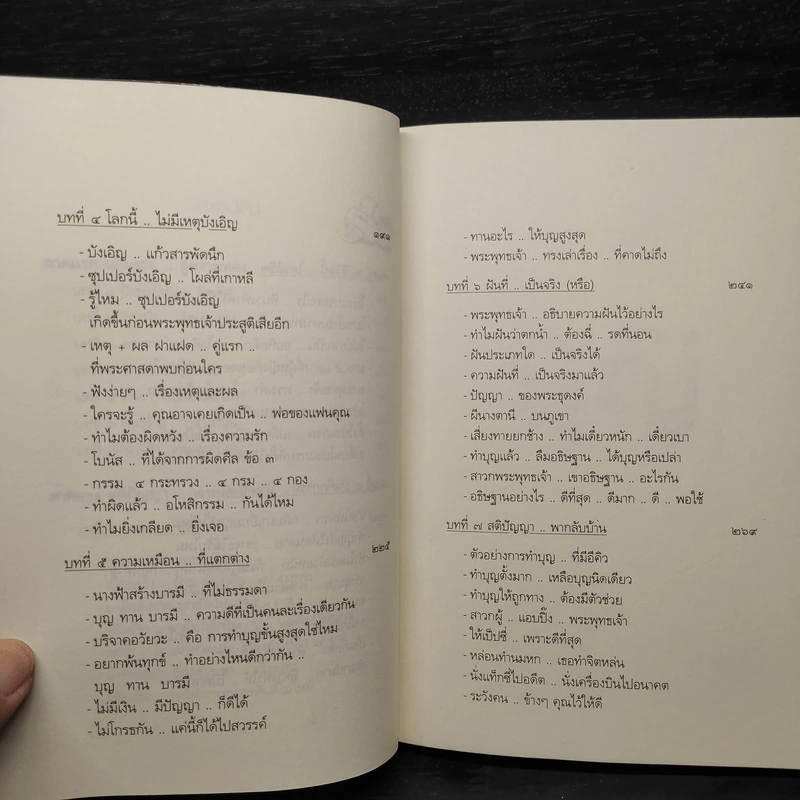 บทที่ ๔ โลกนี้ .. ไม่มีเหตุบังเอิญ ๑๙๑
- บังเอิญ .. แก้วสารพัดนึก
- ซุปเปอร์บังเอิญ .. โผล่ที่เกาหลี
- รู้ไหม .. ซุปเปอร์บังเอิญ
เกิดขึ้นก่อนพระพุทธเจ้าประสูติเสียอีก
- เหตุ + ผล ฝาแฝด .. คู่แรก ..
ที่พระศาสดาพบก่อนใคร
- ฟังง่ายๆ .. เรื่องเหตุและผล
- ใครจะรู้ .. คุณอาจเคยเกิดเป็น .. พ่อของแฟนคุณ
- ทำไมต้องผิดหวัง .. เรื่องความรัก
- โบนัส .. ที่ได้จากการผิดศีล ข้อ ๓
- กรรม ๔ กระทรวง .. ๔ กรม .. ๔ กอง
- ทำผิดแล้ว .. อโหสิกรรม .. กันได้ไหม
- ทำไมยิ่งเกลียด .. ยิ่งเจอ
บทที่ ๕ ความเหมือน .. ที่แตกต่าง ๒๒๕
- นางฟ้าสร้างบารมี .. ที่ไม่ธรรมดา
- บุญ ทาน บารมี .. ความดีที่เป็นคนละเรื่องเดียวกัน
- บริจาคอวัยวะ .. คือ การทำบุญขั้นสูงสุดใช่ไหม
- อยากพ้นทุกข์ .. ทำอย่างไหนดีกว่ากัน ..
บุญ ทาน บารมี
- ไม่มีเงิน .. มีปัญญา .. ก็ดีได้
- ไม่โกรธกัน .. แค่นี้ก็ได้ไปสวรรค์
- ทานอะไร .. ให้บุญสูงสุด
- พระพุทธเจ้า .. ทรงเล่าเรื่อง .. ที่คาดไม่ถึง
บทที่ ๖ ฝันที่ .. เป็นจริง (หรือ) ๒๔๑
- พระพุทธเจ้า .. อธิบายความฝันไว้อย่างไร
- ทำไมฝันว่าตกน้ำ .. ต้องฉี่ .. รดที่นอน
- ฝันประเภทใด .. เป็นจริงได้
- ความฝันที่ .. เป็นจริงมาแล้ว
- ปัญญา .. ของพระธุดงค์
- ผีนางตานี .. บนภูเขา
- เสี่ยงทายยกช้าง .. ทำไมเดี๋ยวหนัก .. เดี๋ยวเบา
- ทำบุญแล้ว .. ลืมอธิษฐาน .. ได้บุญหรือเปล่า
- สาวกพระพุทธเจ้า .. เขาอธิษฐาน .. อะไรกัน
- อธิษฐานอย่างไร .. ดีที่สุด .. ดีมาก .. ดี .. พอใช้
บทที่ ๗ สติปัญญา .. พากลับบ้าน ๒๖๙
- ตัวอย่างการทำบุญ .. ที่มีอีคิว
- ทำบุญตั้งมาก .. เหลือบุญนิดเดียว
- ทำบุญให้ถูกทาง .. ต้องมีตัวช่วย
- สาวกผู้ .. แอบปิ๊ง .. พระพุทธเจ้า
- ให้เป๊ปซี่ .. เพราะดีที่สุด
- หล่อนทำนมหก .. เธอทำจิตหล่น
- นั่งแท็กซี่ไปอดีต .. นั่งเครื่องบินไปอนาคต
- ระวังคน .. ข้างๆ คุณไว้ให้ดี